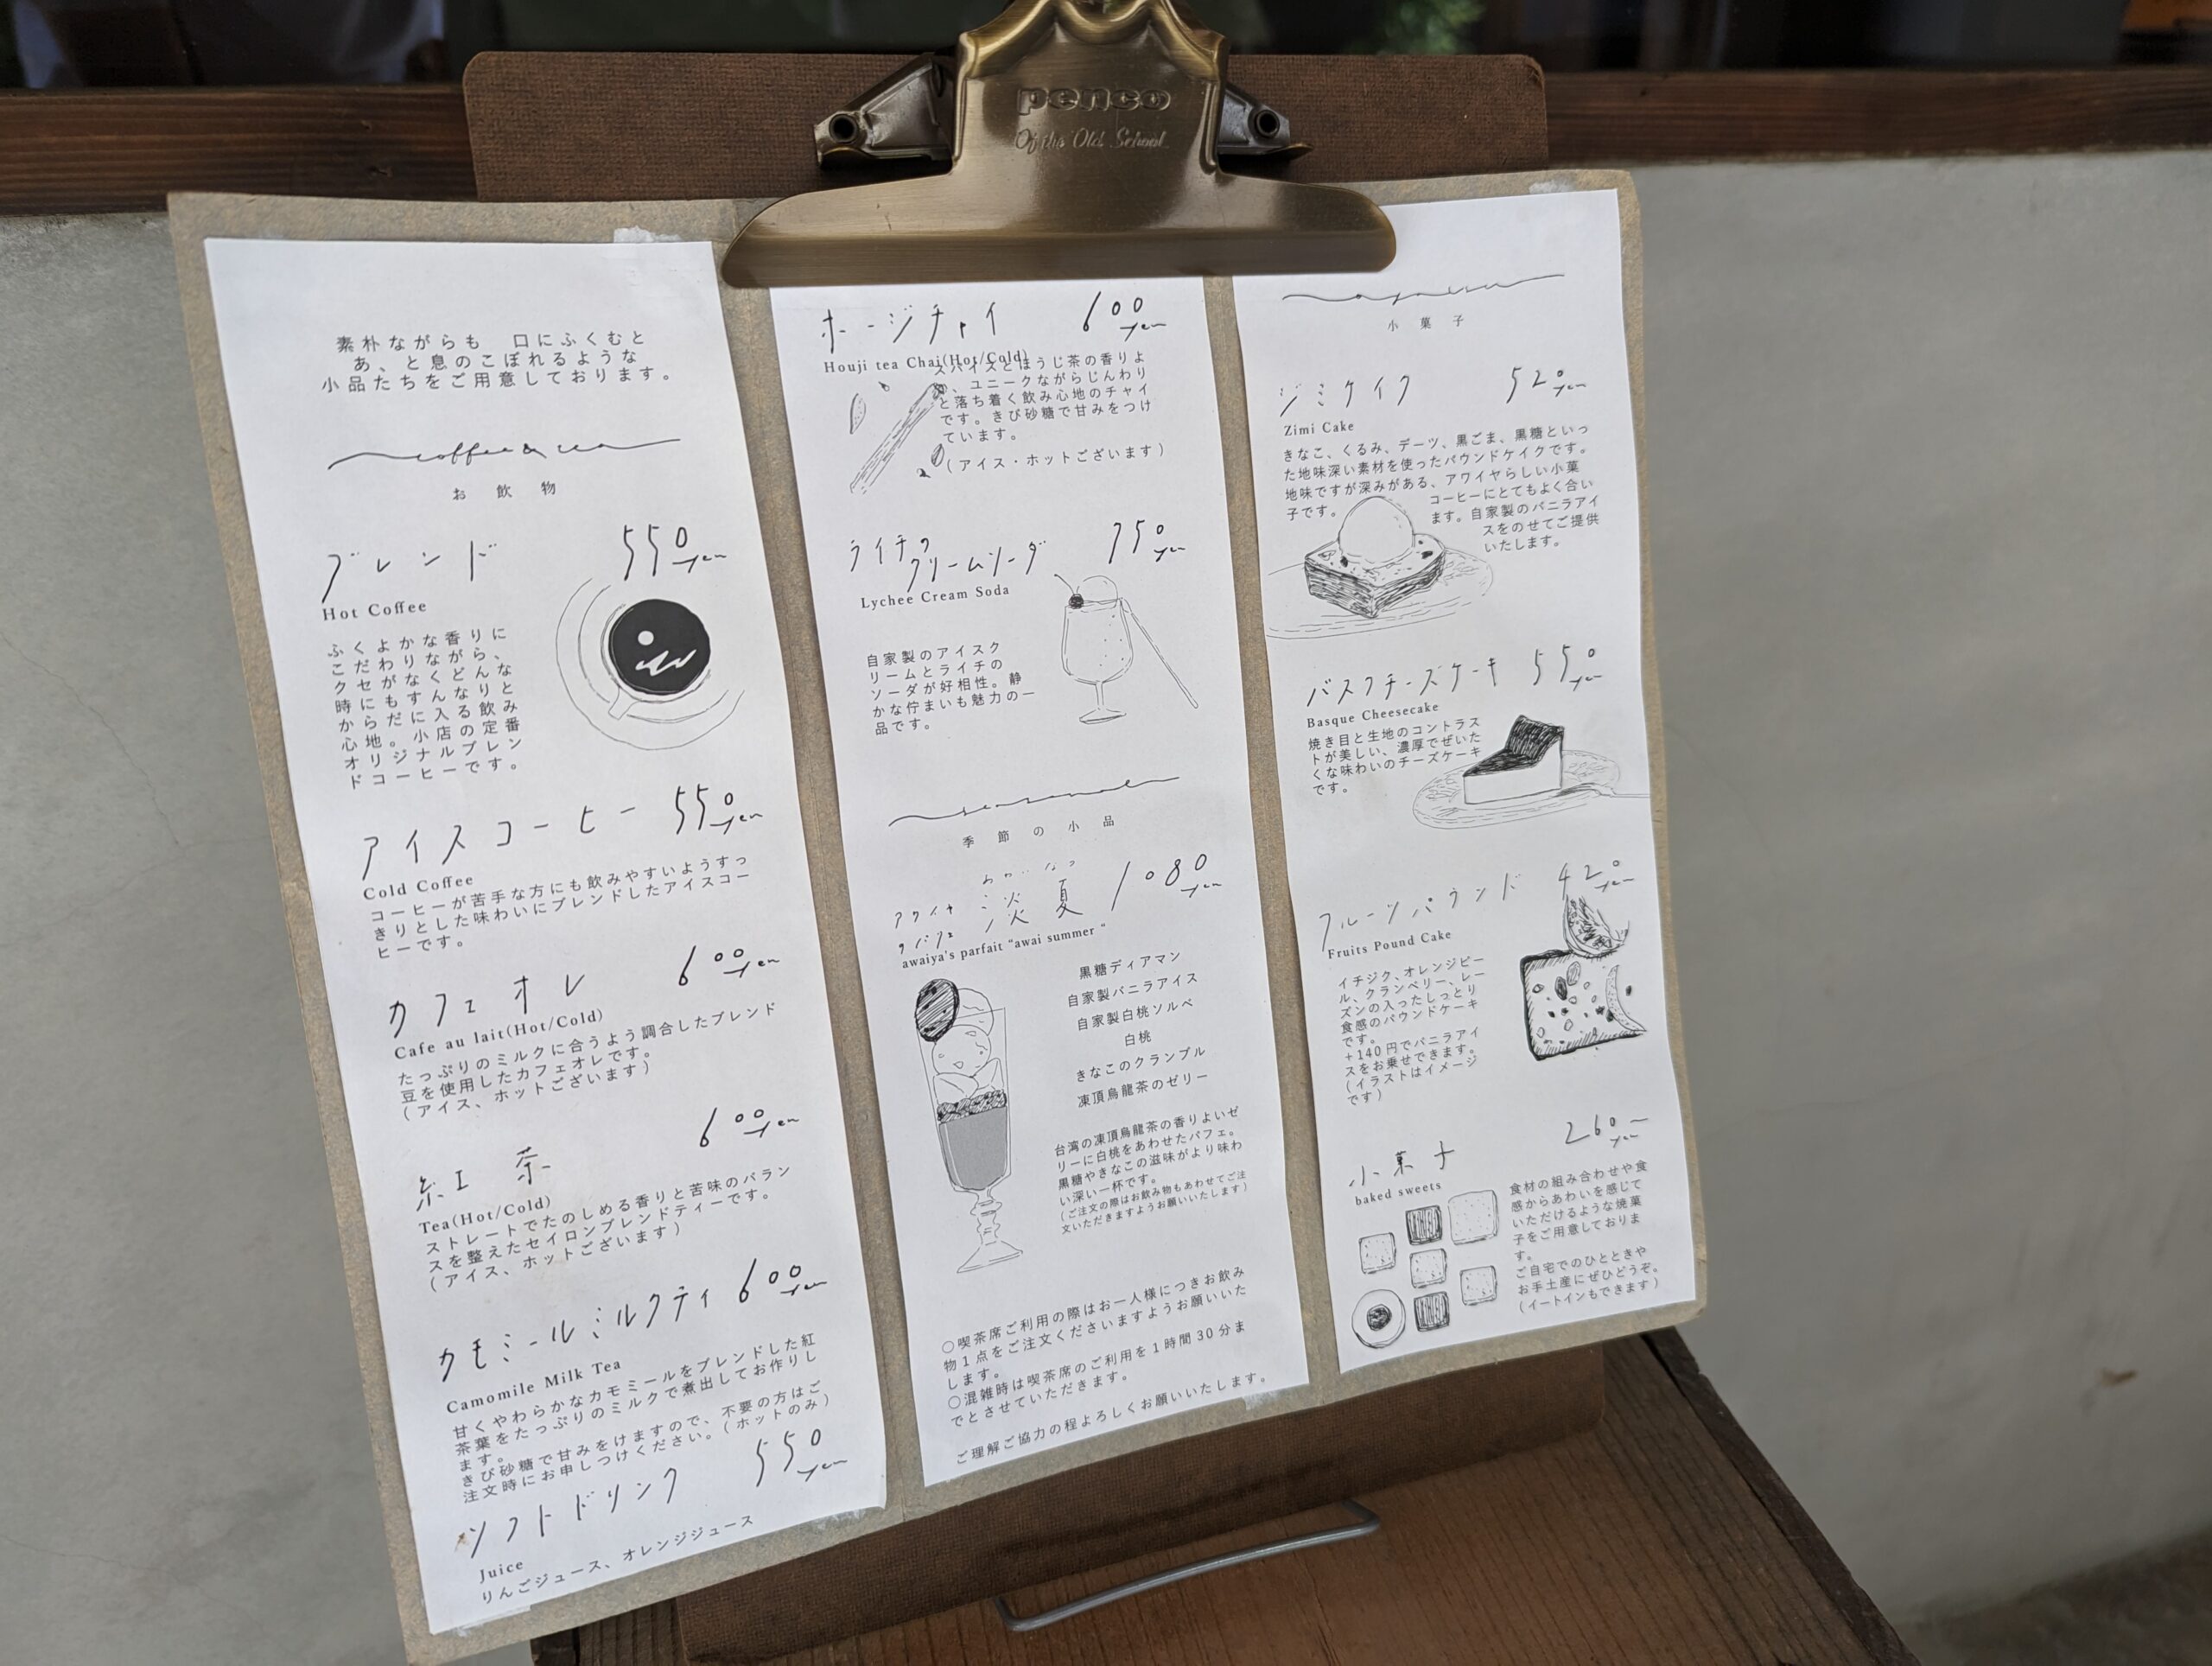 penco
Of the Old School
素朴ながらも 口にふくむと
あ、と息のこぼれるような
小品たちをご用意しております。
coffee & tea
お飲物
ブレンド 550yen
Hot Coffee
ふくよかな香りに
こだわりながら、
クセがなくどんな
時にもすんなりと
からだに入る飲み
心地。小店の定番
オリジナルブレン
ドコーヒーです。
アイスコーヒー 550yen
Cold Coffee
コーヒーが苦手な方にも飲みやすいようすっ
きりとした味わいにブレンドしたアイスコー
ヒーです。
カフェオレ 600yen
Cafe au lait(Hot/Cold)
たっぷりのミルクに合うよう調合したブレンド
豆を使用したカフェオレです。
(アイス、ホットございます)
紅茶 600yen
Tea(Hot/Cold)
ストレートでたのしめる香りと苦味のバラン
スを整えたセイロンブレンドティーです。
(アイス、ホットございます)
カモミールミルクティ 600yen
Camomile Milk Tea
甘くやわらかなカモミールをブレンドした紅
茶葉をたっぷりのミルクで煮出してお作りし
ます。
きび砂糖で甘みをけますので、不要の方はご
注文時にお申しつけください。(ホットのみ)
ソフトドリンク 550yen
Juice
りんごジュース、オレンジジュース
ホージチャイ 600yen
Houji tea Chai(Hot/Cold)
スパイスとほうじ茶の香りよ
い、ユニークながらじんわり
と落ち着く飲み心地のチャイ
です。きび砂糖で甘みをつけ
ています。
(アイス・ホットございます)
ライチの
クリームソーダ 750yen
Lychee Cream Soda
自家製のアイスク
リームとライチの
ソーダが好相性。静
かな佇まいも魅力の一
品です。
seasonal
季節の小品
あわいなつ
アワイヤ
のパフェ 淡夏 1080yen
awaiya's parfait "awai summer "
黒糖ディアマン
自家製バニラアイス
自家製白桃ソルベ
白桃
きなこのクランブル
凍頂烏龍茶のゼリー
台湾の凍頂烏龍茶の香りよいゼ
リーに白桃をあわせたパフェ。
黒糖やきなこの滋味がより味わ
い深い一杯です。
(ご注文の際はお飲み物もあわせてご注
文いただきますようお願いいたします)
○喫茶席ご利用の際はお一人様につきお飲み
物1点をご注文くださいますようお願いいた
します。
○混雑時は喫茶席のご利用を1時間30分ま
でとさせていただきます。
ご理解ご協力の程よろしくお願いいたします。
小菓子
ジミケイク 520yen
Zimi Cake
きなこ、くるみ、デーツ、黒ごま、黒糖といっ
た地味深い素材を使ったパウンドケイクです。
地味ですが深みがある、アワイヤらしい小菓
子です。
コーヒーにとてもよく合い
ます。自家製のバニラアイ
スをのせてご提供
いたします。
バスクチーズケーキ 550yen
Basque Cheesecake
焼き目と生地のコントラス
トが美しい、濃厚でぜいた
くな味わいのチーズケーキ
です。
フルーツパウンド 420yen
Fruits Pound Cake
イチジク、オレンジピー
ル、クランベリー、レー
ズンの入ったしっとり
食感のパウンドケーキ
です。
+140円でバニラアイ
スをお乗せできます。
(イラストはイメージ
です)
260yen〜
小菓子
baked sweets
食材の組み合わせや食
感からあわいを感じて
いただけるような焼菓
子をご用意しておりま
す。
ご自宅でのひとときや
お手土産にぜひどうぞ。
(イートインもできます)